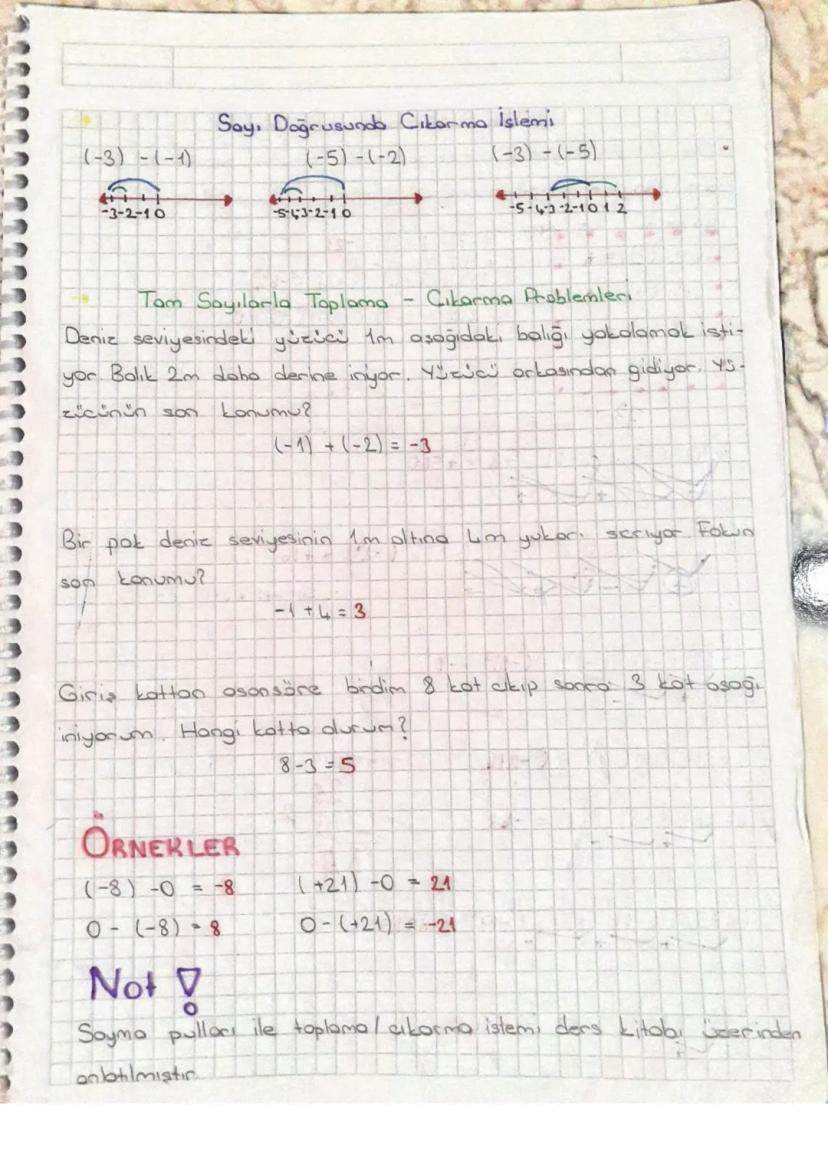 Sayı Doğrusunda Çıkarma İşlemi
(-3) -(-1) (-5) -(-2) (-3) -(-5)
-3-2-1 0 -5-4-3-2-1 0 -5-4-3-2-1 0 1 2
Tam Sayılarla Toplama - Çıkarma Problemleri
Deniz seviyesindeki yüzücü 1m aşağıdaki balığı yakalamak isti-
yor. Balık 2m daha derine iniyor. Yüzücü arkasından gidiyor. Yü-
zücünün son konumu?
(-1) + (-2) = -3
Bir pok deniz seviyesinin 1m altına 4m yukarı Fokun
son konumu?
-1 + 4 = 3
Giriş kattan asansöre bindim 8 kat çıkıp sonra 3 kat aşağı
iniyorum. Hangi katta dururum?
8-3 = 5
ÖRNEKLER
(-8) -0 = -8 (+21) -0 = 21
0 - (-8) = 8 0 - (+21) = -21
Not !
Sayma pulları ile toplama/çıkarma işlemi ders kitabı üzerinden
anlatılmıştır.